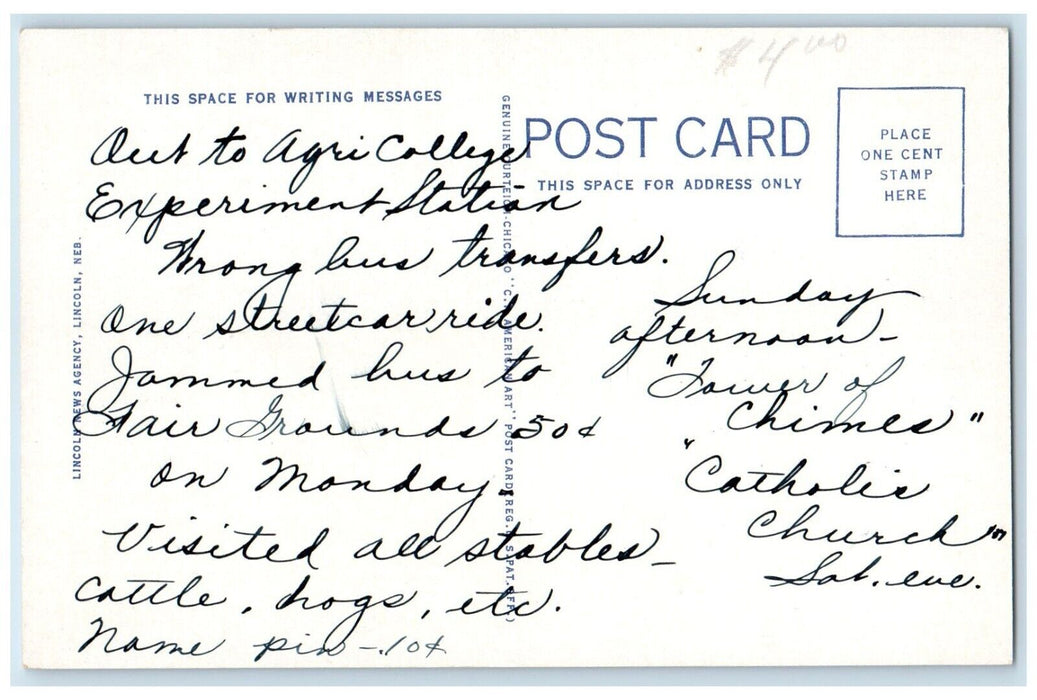 $4.00
THIS SPACE FOR WRITING MESSAGES
POST CARD
THIS SPACE FOR ADDRESS ONLY
PLACE
ONE CENT
STAMP
HERE
LINCOLN NEWS AGENCY, LINCOLN, NEB.
GENUINE CURTEICH-CHICAGO "C.T. AMERICAN ART" POST CARD (REG. U.S. PAT. OFF.)
Out to Agri College
Experiment Station
Wrong bus transfers.
One streetcar ride.
Jammed bus to
Fair Grounds 50¢
on Monday.
Visited all stables -
cattle, hogs, etc.
Name pin - .10¢
Sunday
afternoon -
"Tower of
Chimes"
"Catholic
Church"
Sat. eve.